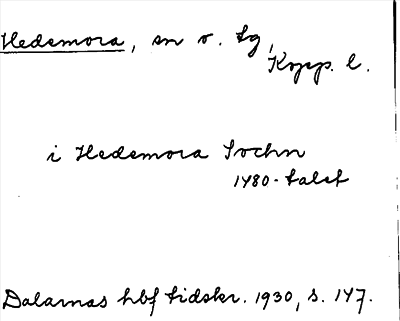 Hedemora, sn o. tg,
Kopp. l.
i Hedemora Sochn
1480-talet
Dalarnas hbf tidskr. 1930, s. 147.